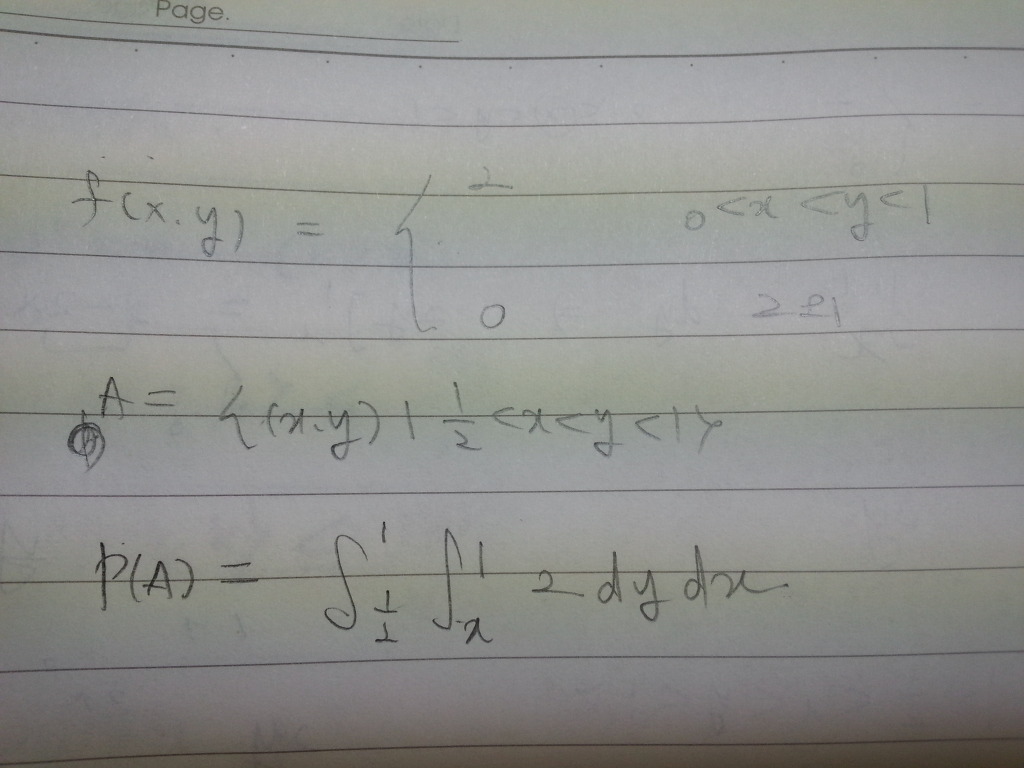 Page.
f(x.y) = { 2 0<x<y<1
0 그외
A = {(x.y) | 1/2 <x<y<1}
P(A) = ∫_{1/2}^{1} ∫_{x}^{1} 2 dy dx